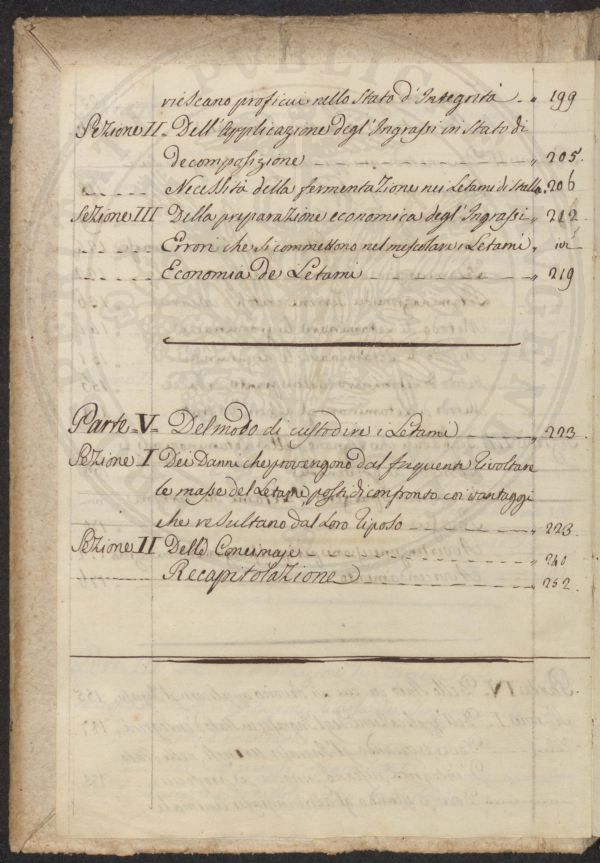 riescano proficui nello Stato d'Integrità „ 199
Sezione II Dell'Applicazione degl'Ingrassi in Stato di
decomposizione „ 205.
Necessità della fermentazione nei Letami di Stalla. 206
Sezione III Della preparazione economica degl'Ingrassi „ 212
Errori che si commettono nel mescolare i Letami „ ivi
Economia de Letami „ 219
Parte V Del modo di custodire i Letami „ 223
Sezione I Dei Danni che provengono dal frequente Rivoltare
le masse del Letame, posti di confronto coi vantaggi
che resultano dal Loro Riposo „ 223
Sezione II Delle Concimaje „ 240
Recapitolazione „ 252